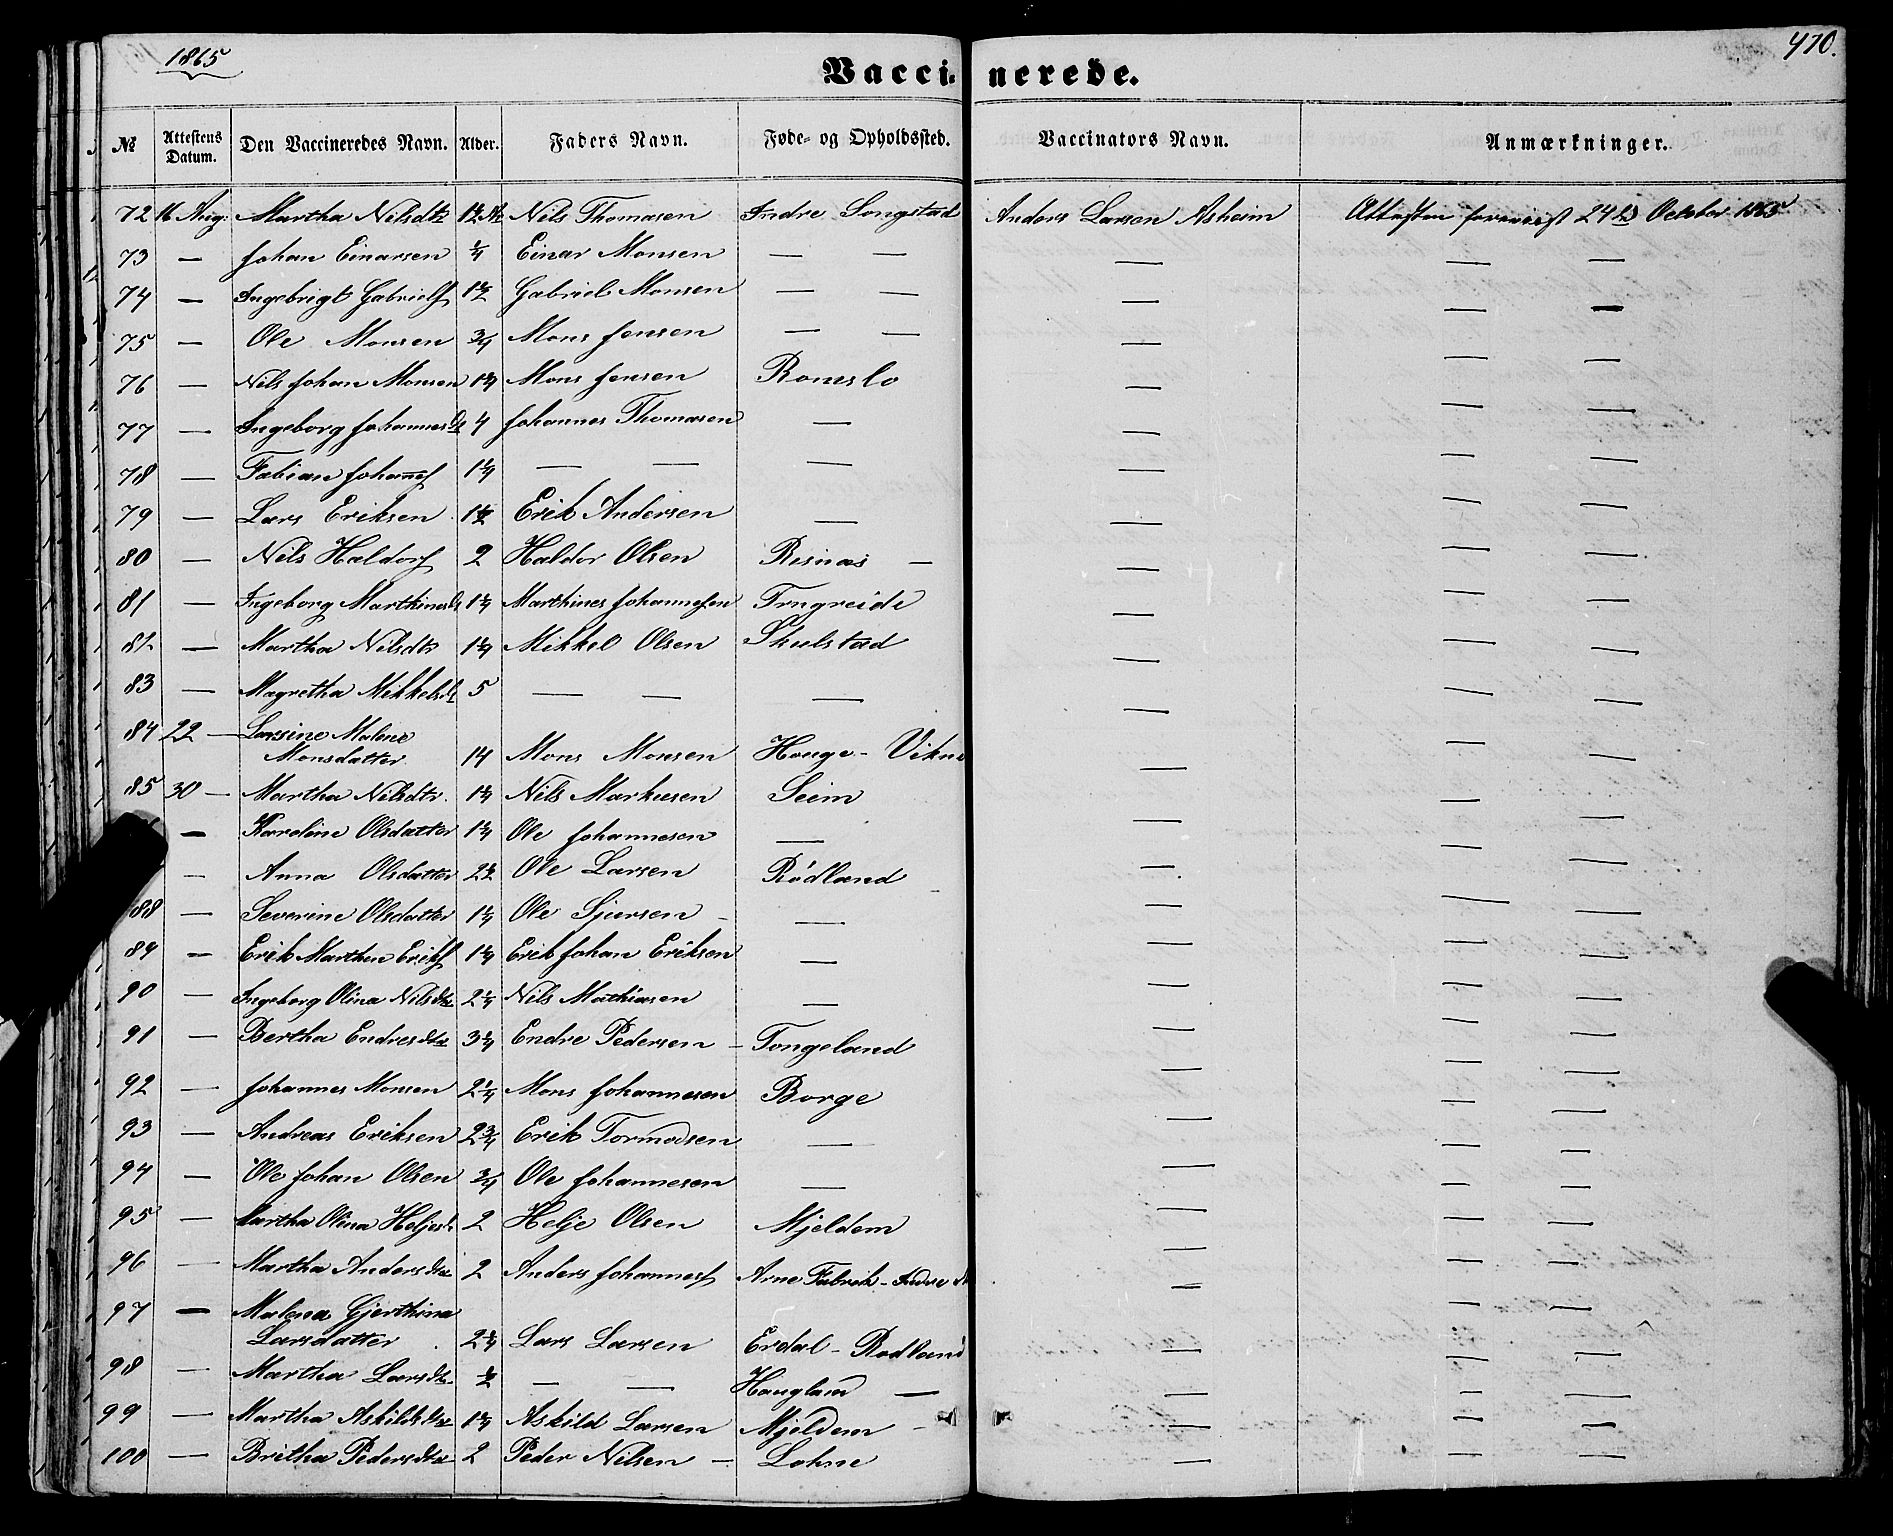 1865
470.
Vaccinerede.
№ Attestens Datum. Den Vaccineredes Navn. Alder. Faders Navn. Føde- og Opholdssted. Vaccinators Navn. Anmærkninger.
72 16 Aug: Martha Nilsdtr Nils Thomasen Indre Songstad Anders Larsen Asheim Attesten foreviist 24de October 1865
73 — Johan Einarsen ¼ Einar Monsen — — — — —
74 — Ingebrigt Gabriels 1½ Gabriel Monsen — — — — —
75 — Ole Monsen ¾ Mons Jensen — — — — —
76 — Nils Johan Monsen Mons Jensen Romslo — — —
77 — Ingeborg Johannesd 4 Johannes Thomasen — — — —
78 — Fabian Johans 1¼ — — — — — —
79 — Lars Eriksen 1½ Erik Andersen — — — —
80 — Nils Haldors 2 Haldor Olsen Risnæs — — — —
81 — Ingeborg Marthinesd 1¼ Marthines Johannesen Trngreide — — —
82 — Martha Nilsdtr 1¼ Mikkel Olsen Skulstad — — —
83 — Magretha Mikkelsd 5 — — — — — —
84 22 — Larsine Malene
Monsdatter 14 Mons Monsen Houge - Vikne — — —
85 30 — Martha Nilsdtr. 1¼ Nils Markusen Seim — — —
— Karoline Olsdatter 1¼ Ole Johannesen — — — —
— Anna Olsdatter 2½ Ole Larsen Rödland — — —
88 — Severine Olsdatter 1¼ Ole Sjursen — — — —
89 — Erik Marthin Eriks 1¼ Erik Johan Eriksen — — — —
90 — Ingeborg Olina Nilsdtr 2¼ Nils Mathiasen — — — —
91 — Bertha Endresdtr 3¼ Endre Pedersen — Tongeland — — —
92 — Johannes Monsen 2¼ Mons Johannesen Borge — — —
93 — Andreas Eriksen 2¾ Erik Tormodsen — — — —
94 — Ole Johan Olsen ¾ Ole Johannesen — — — —
95 — Martha Olina Heljesd 2 Helje Olsen Mjeldem — — —
96 — Martha Andersdtr 2 Anders Johannes Arne Fabrik - Indre — — —
97 — Malena Gjerthina
Larsdatter 2¼ Lars Larsen Erdal - Rödland — — —
98 — Martha Larsdtr ½ — — Haugland — — — —
99 — Martha Askildsdtr 1¼ Askild Larsen Mjeldem — — —
100 — Britha Pedersdtr 2 Peder Nilsen — Lohne — — —